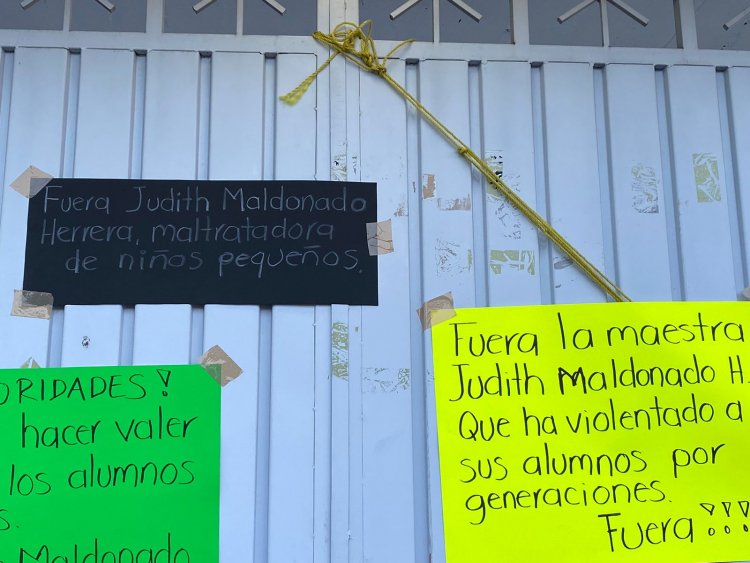 Fuera Judith Maldonado
Herrera, maltratadora
de niños pequeños.
ORIDADES!
hacer valer
los alumnos
s.
Maldonado
Fuera la maestra
Judith Maldonado H.
Que ha violentado a
sus alumnos por
generaciones.
Fuera!!!